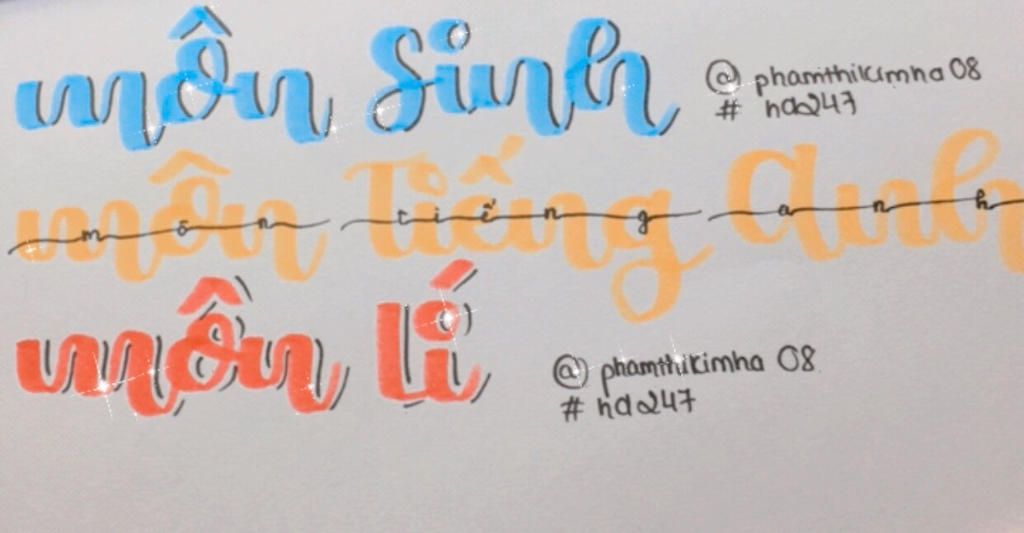 môn Sinh
@ phamthikimha 08
# hd247
môn Tiếng Anh
môn tiếng anh
môn Lí
@ phamthikimha 08
# hd247